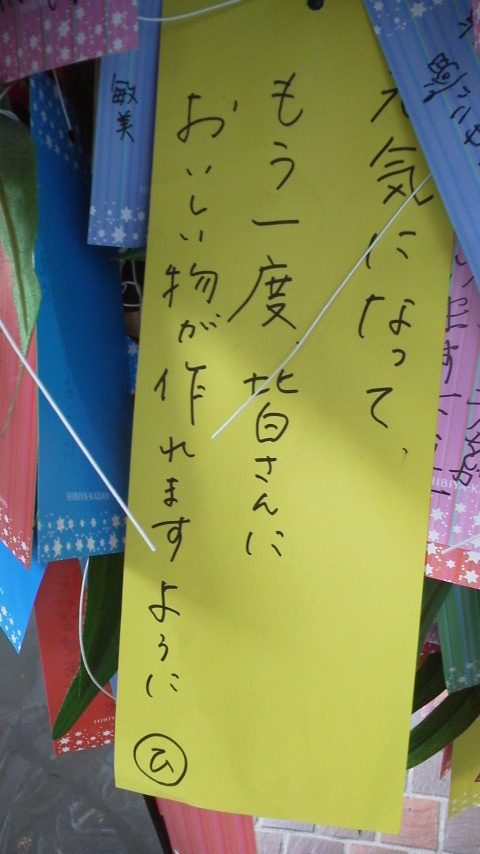 元気になって、
もう一度、皆さんに
おいしい物が作れますように
ひ
敏美
HIBIYA-KADAN